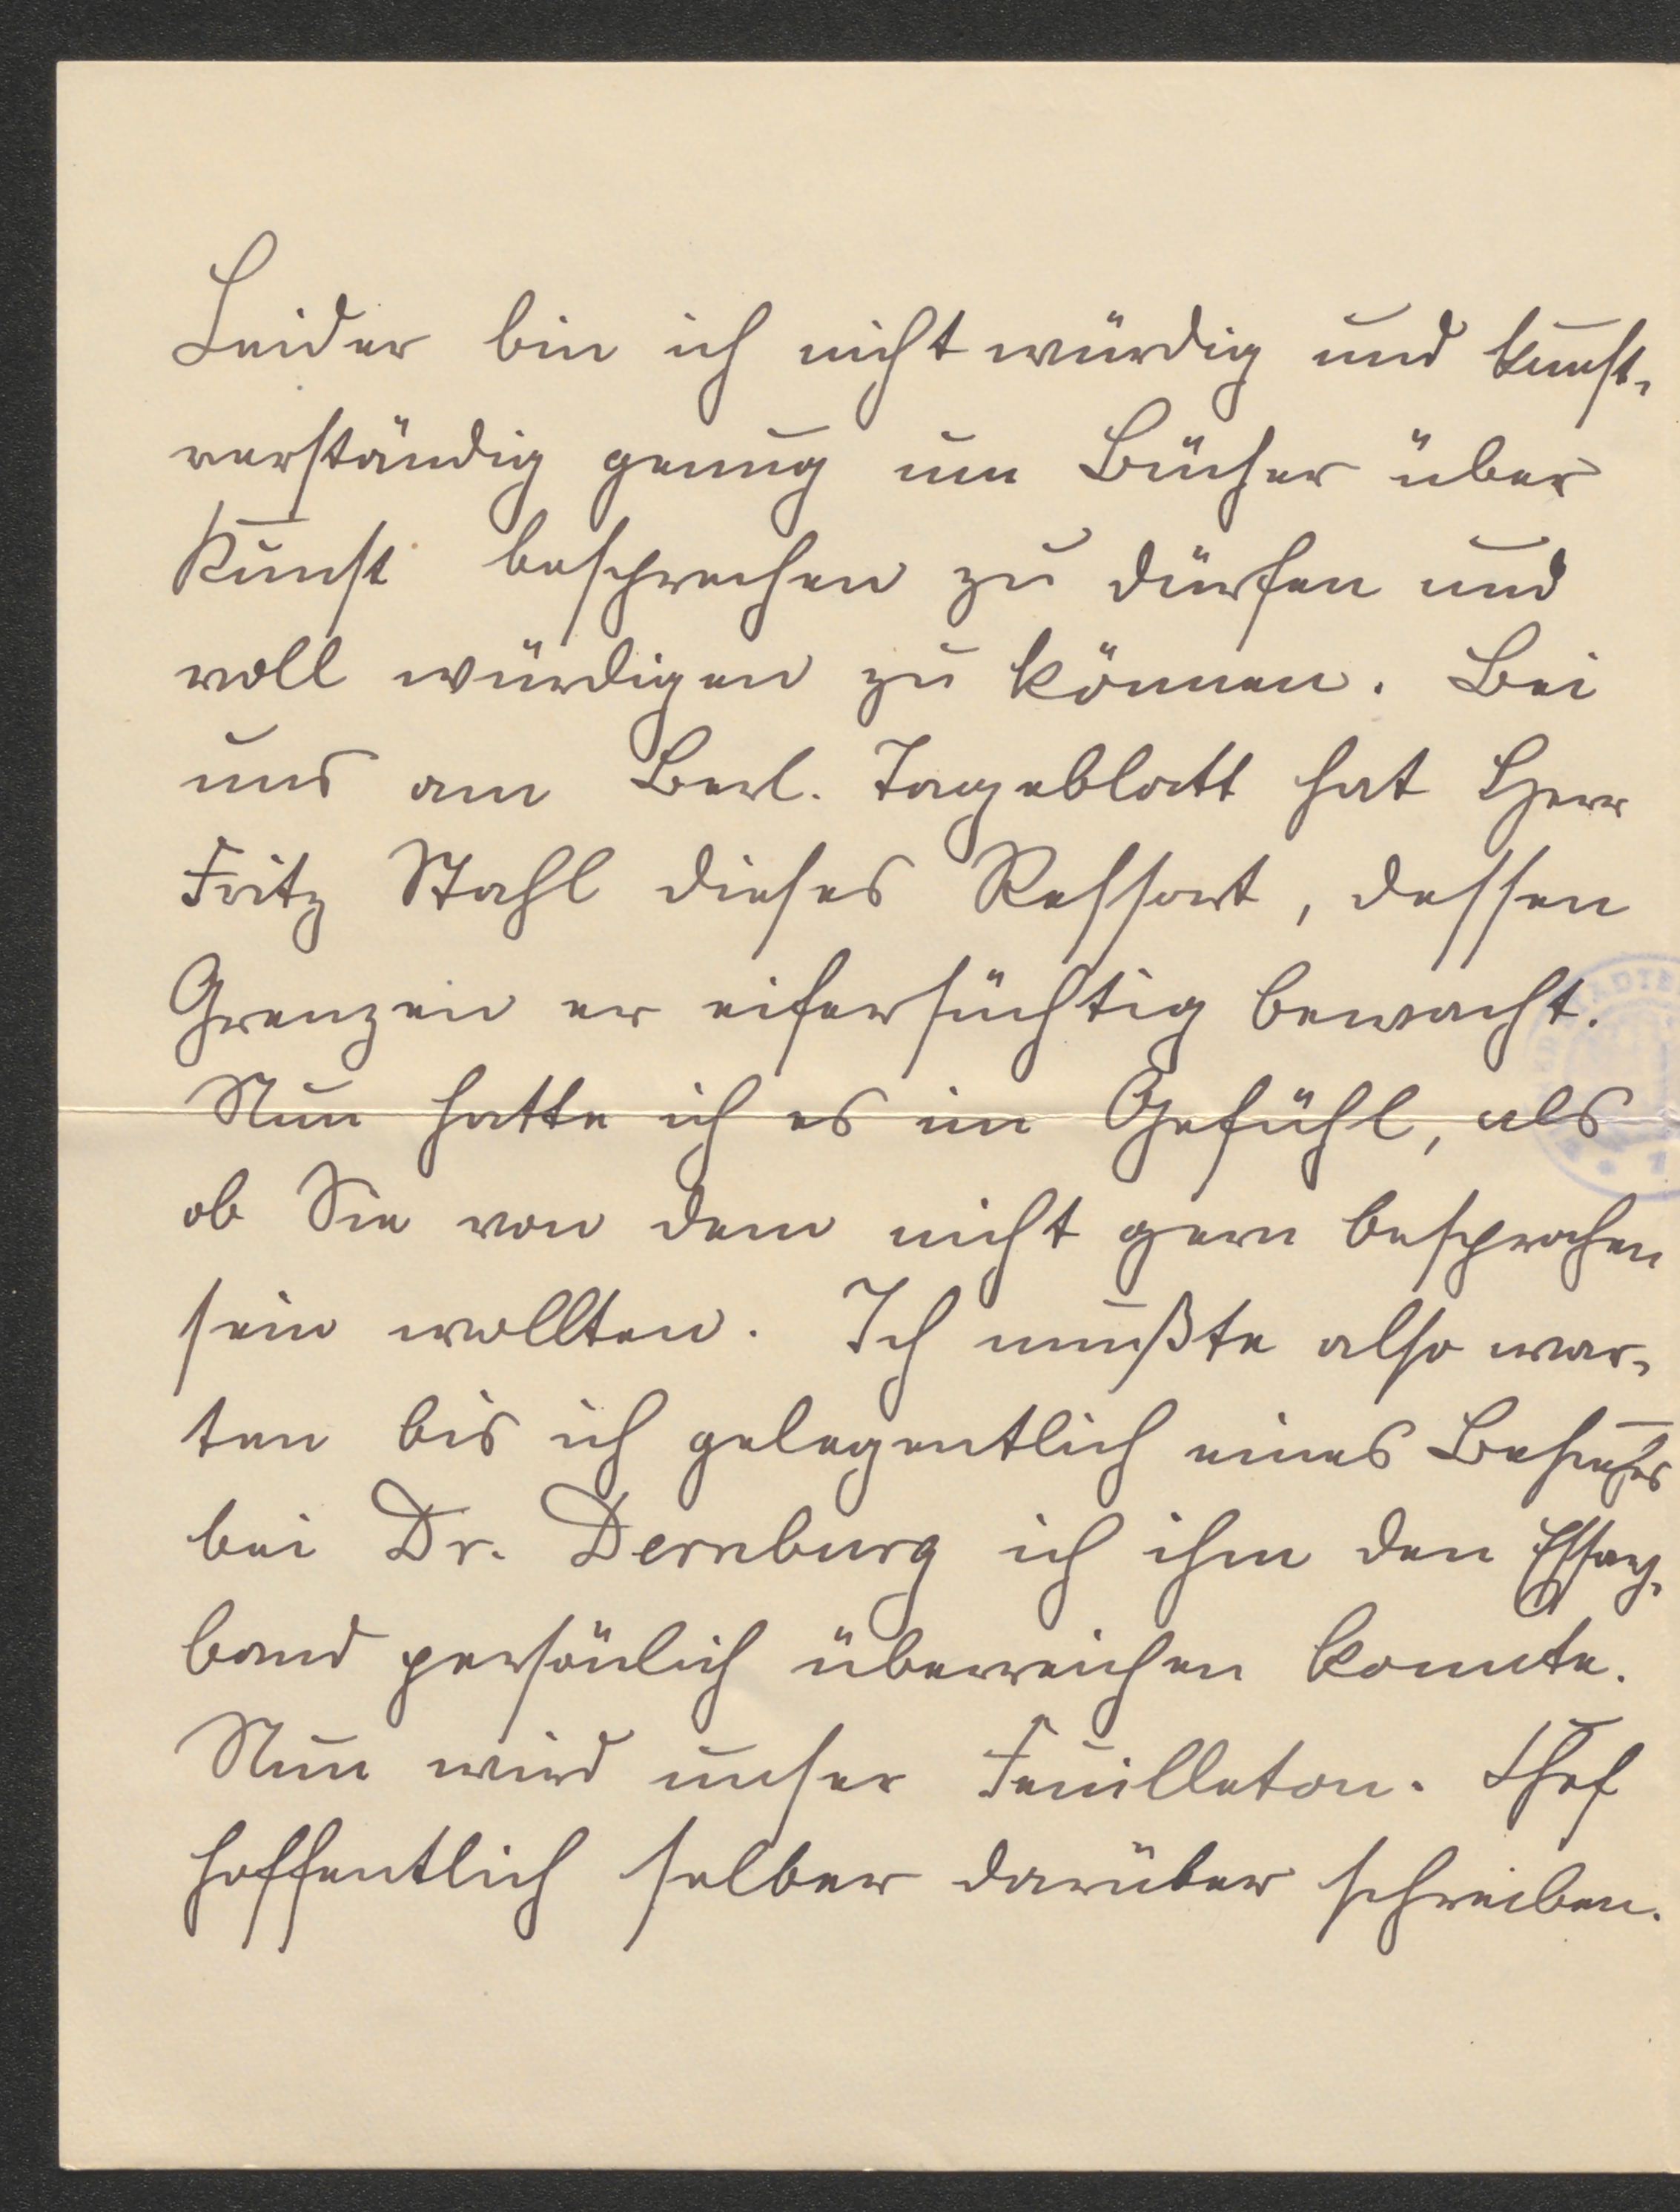 Leider bin ich nicht würdig und kunst-
verständig genug um Bücher über
Kunst besprechen zu dürfen und
voll würdigen zu können. Bei
uns am Berl. Tageblatt hat Herr
Fritz Stahl dieses Ressort, dessen
Grenzen er eifersüchtig bewacht.
Nun hatte ich es im Gefühl, als
ob Sie von dem nicht gern besprochen
sein wollten. Ich mußte also war-
ten bis ich gelegentlich eines Besuches
bei Dr. Dernburg ich ihm den Essay-
band persönlich überreichen konnte.
Nun wird unser Feuilleton-Chef
hoffentlich selber darüber schreiben.